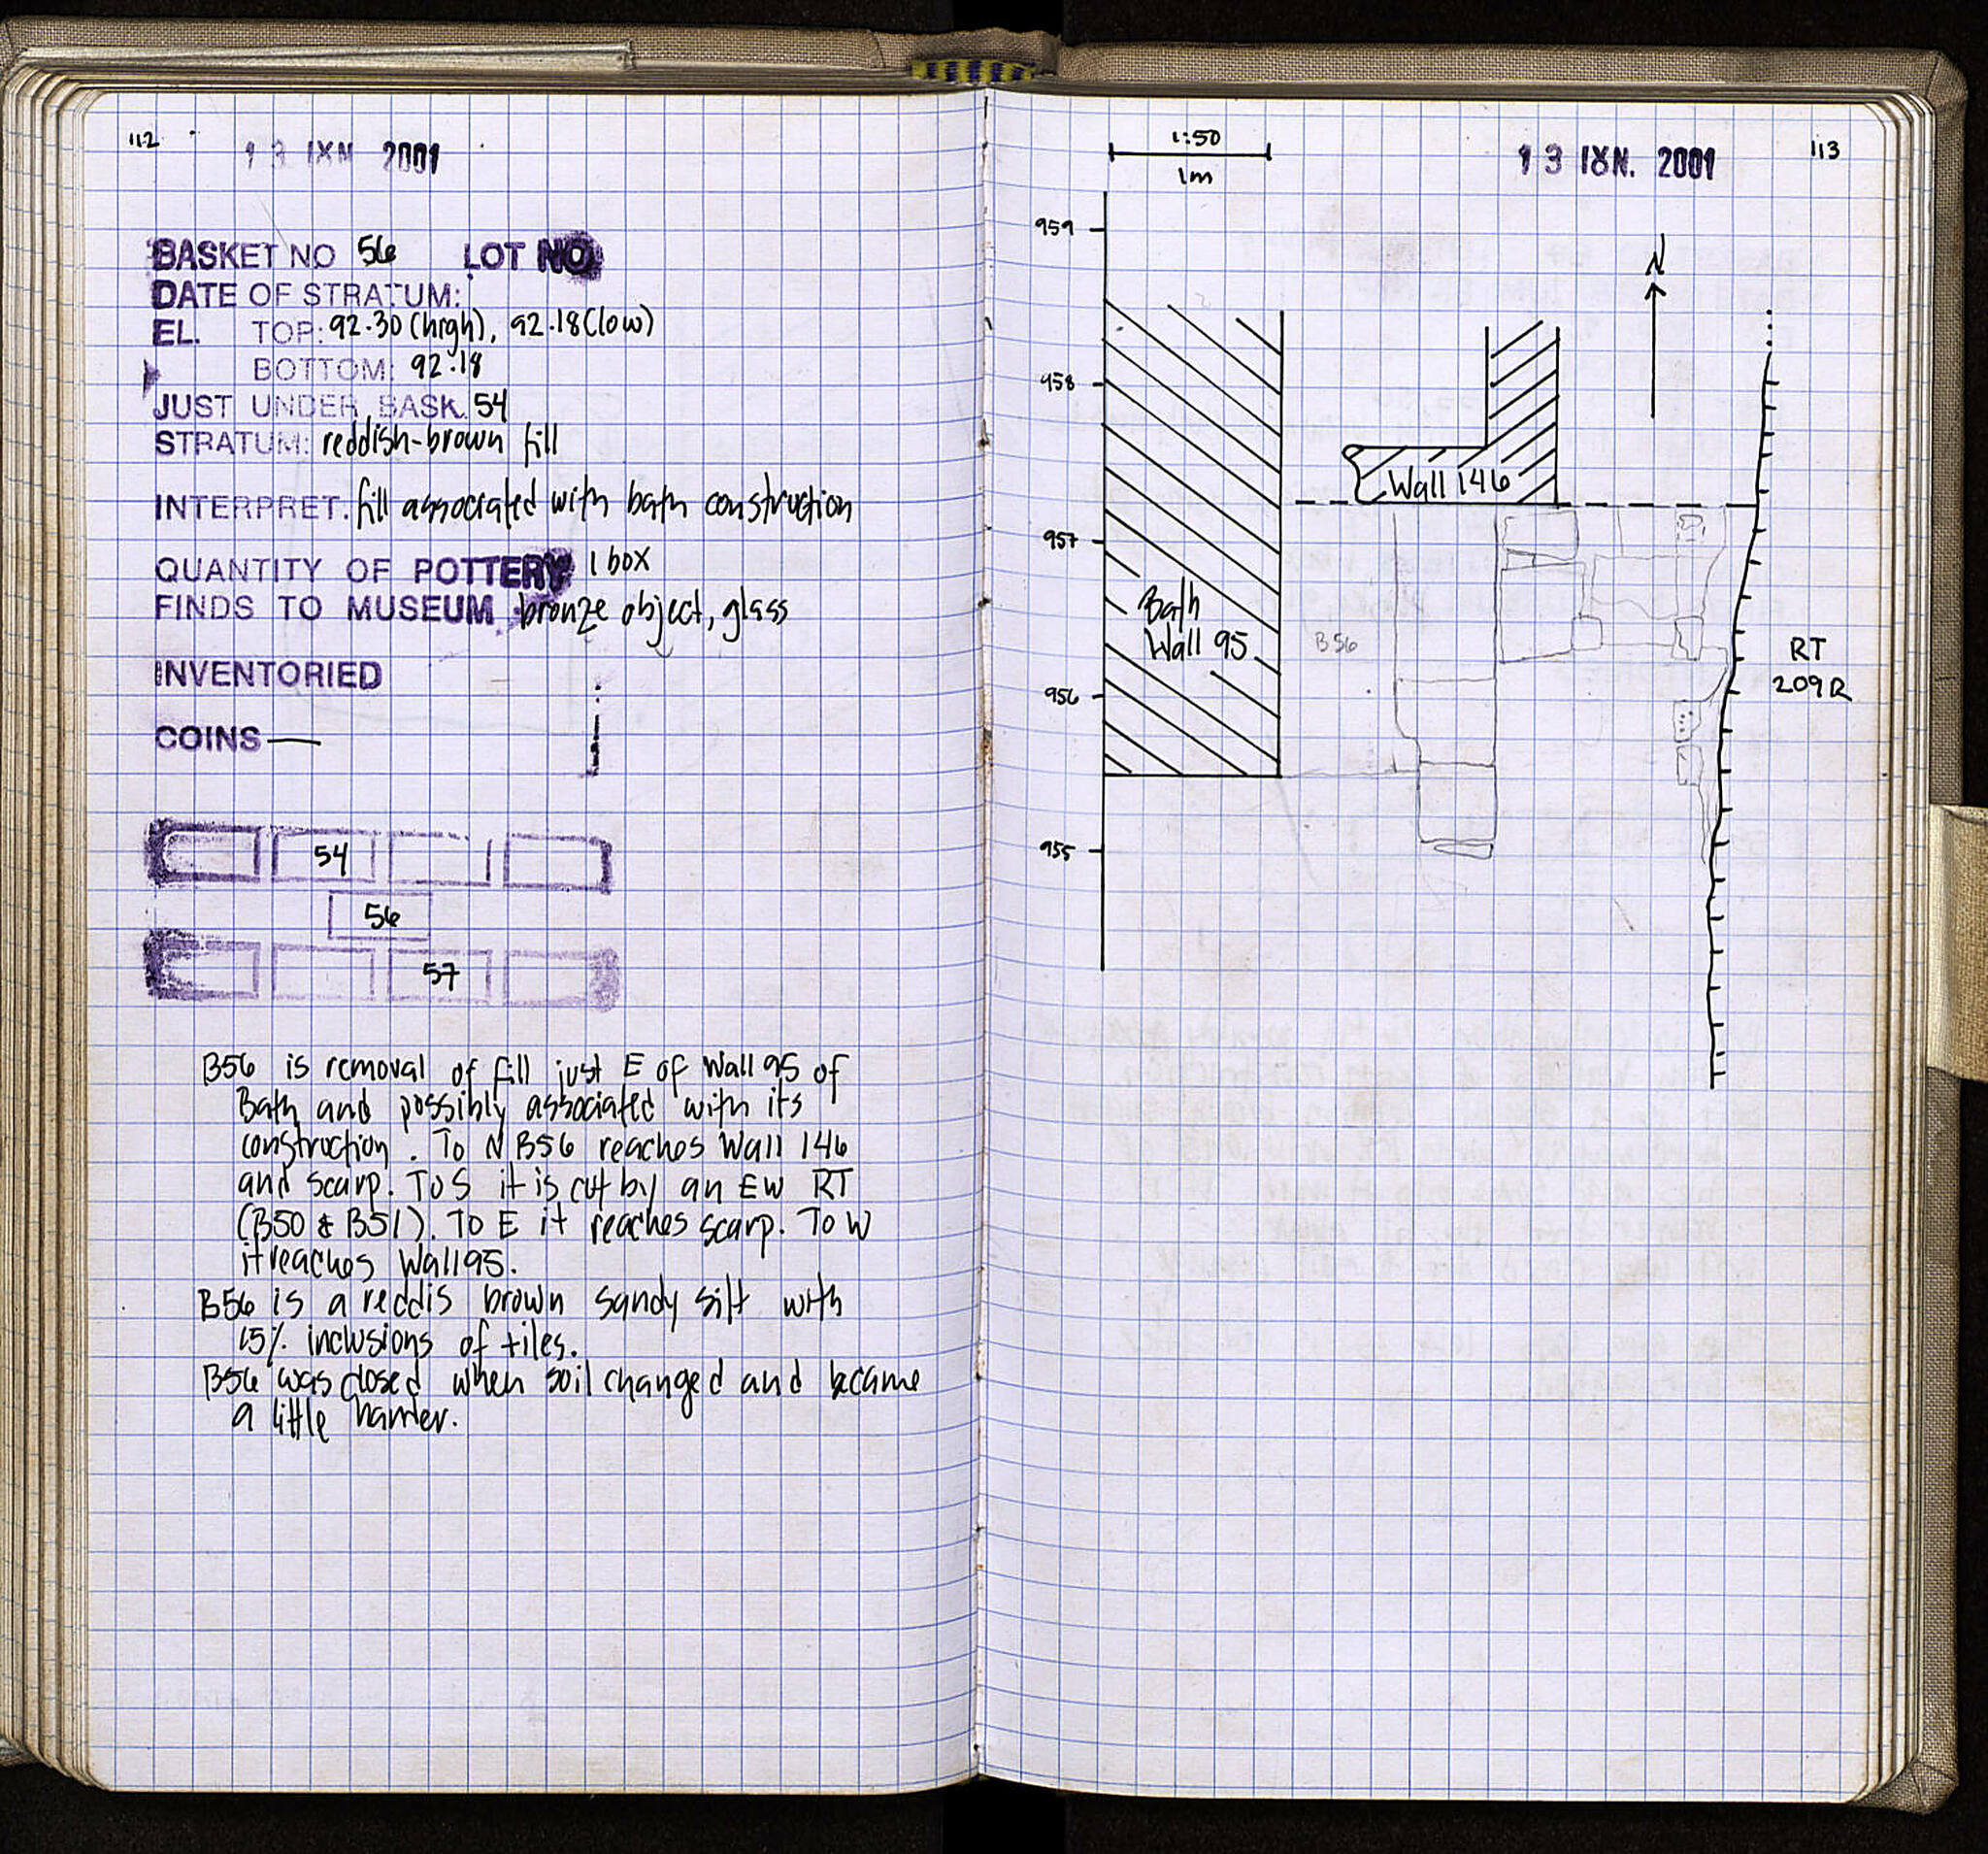 112
13 ΙΧΝ 2001
BASKET NO 56 LOT NO
DATE OF STRATUM:
EL. TOP: 92.30 (high), 92.18 (low)
BOTTOM: 92.18
JUST UNDER BASK. 54
STRATUM: reddish-brown fill
INTERPRET: fill associated with bath construction
QUANTITY OF POTTERY 1 box
FINDS TO MUSEUM bronze object, glass
INVENTORIED
COINS —
54
56
57
B56 is removal of fill just E of Wall 95 of
Bath and possibly associated with its
construction. To N B56 reaches Wall 146
and scarp. To S it is cut by an EW RT
(B50 & B51). To E it reaches scarp. To W
it reaches Wall 95.
B56 is a reddis brown sandy silt with
15% inclusions of tiles.
B56 was closed when soil changed and became
a little harder.
1:50
1m
13 ΙȣΝ. 2001
113
959
N
958
Wall 146
957
Bath
Wall 95
B56
RT
209R
956
955